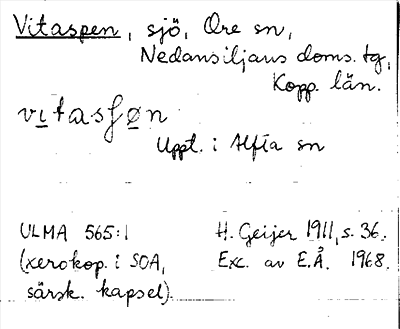 Vitaspen, sjö, Ore sn,
Nedansiljans doms. tg,
Kopp. län.
vi̲tasfø̲n
Uppt. i Alfta sn
ULMA 565:1 H. Geijer 1911, s. 36.
(xerokop. i SOA, Exc. av E.Å. 1968.
särsk. kapsel).